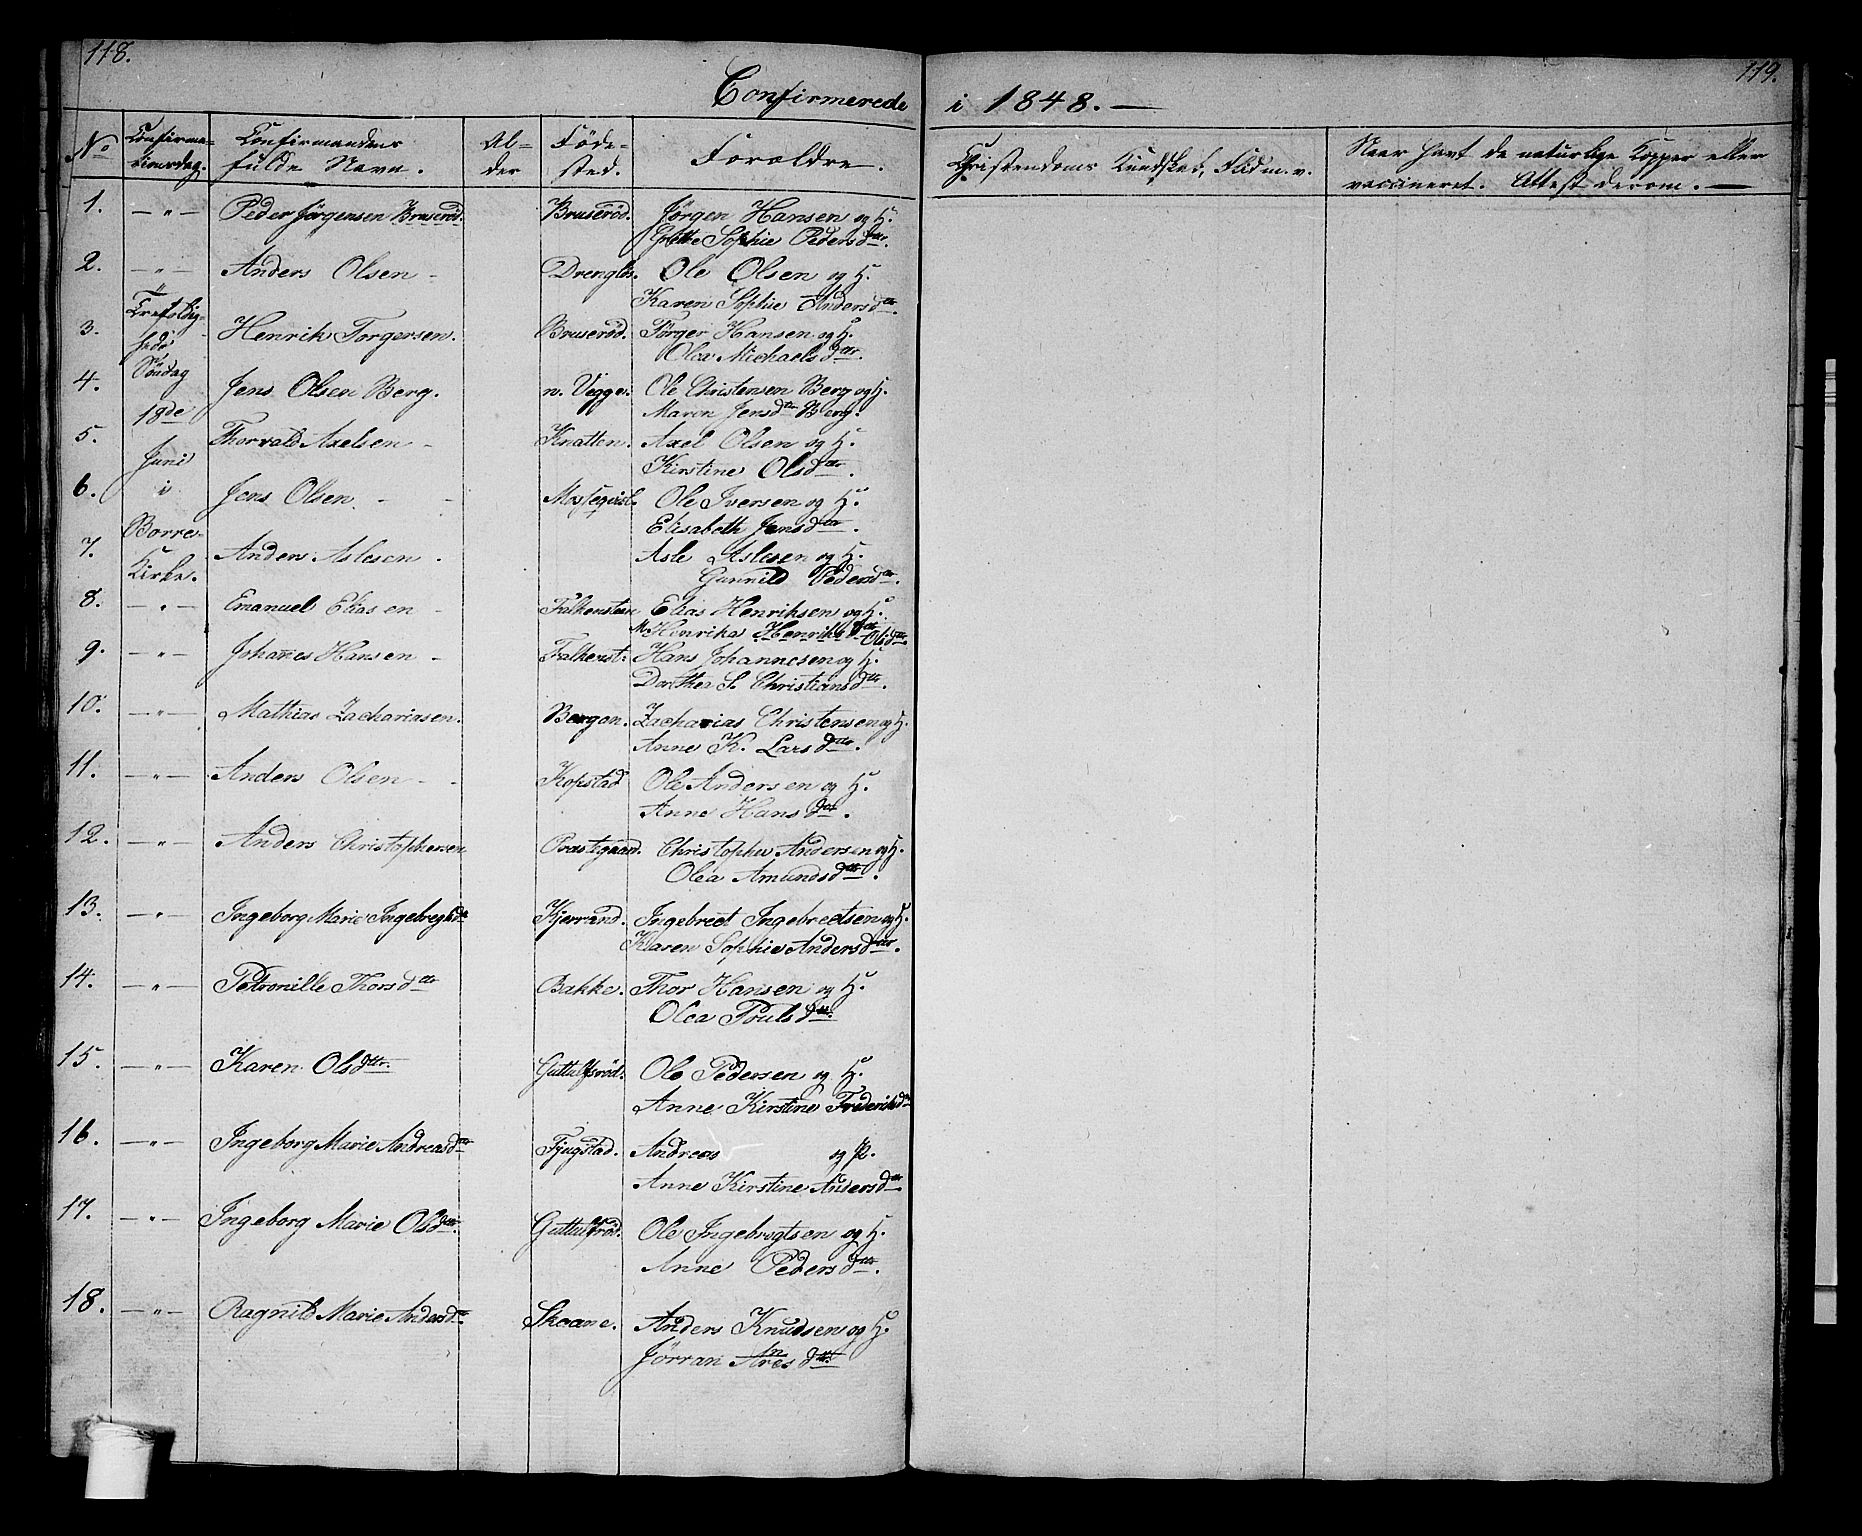 118.
119.
Confirmerede i 1848. —
No Confirma- Confirmandens Al- Føde- Forældre. Christendoms Kundskab, Flid m. v. Naar havt de naturlige Kopper eller
tionsdag. fulde Navn. der sted. vaccineret. Attest derom. —
1. — " — Peder Jørgensen Bruserød. Bruserød. Jørgen Hansen og H.
Sophie Pedersdtr.
2. — " — Anders Olsen - Ole Olsen og H.
Karen Sophie Andersdtr.
Trefoldig-
3. heds Henrik Torgersen. Bruserød. Torger Hansen og H.
Olea Michaelsdtr.
4. Søndag Jens Olsen Berg. n. Vegger. Ole Christensen Berg og H.
18de Maren Jensdtr Berg.
5. Thorvald Axelsen - Knatten. Axel Olsen og H.
Juni Kirstine Olsdtr.
6. i Jens Olsen. - - Ole Iversen og H.
Borre- Elisabeth Jensdtr.
7. Anders Aslesen - Asle Aslesen og H.
Kirke. Gunnild Pedersdtr.
8. — " — Emanuel Eliasen - Falkensteen Elias Henriksen og H.
M. Henrika Henriksdtr Olsdtr.
9. — " — Johannes Hansen - Falkenst: Hans Johannesen og H.
Dorthea S. Christiansdtr.
10. — " — Mathias Zachariasen. Bergan. Zacharias Christensen og H.
Anne K. Larsdtr.
11. — " — Anders Olsen - - Kopstad Ole Andersen og H.
Anne Hansdtr.
12. — " — Anders Christophersen Præstegaard. Christopher Andersen og H.
Olea Amundsdtr.
13. — " — Ingeborg Marie Ingebregtsd. Kjerrand. Ingebrect Ingebrectsen og H.
Karen Sophie Andersdtr.
14. — " — Petronille Thorsdtr Bakke. Thor Hansen og H.
Olea Poulsdtr.
15. — " — Karen Olsdtr. Guttulfsrød. Ole Pedersen og H.
Anne Kirstine Frideriksdtr
16. — " — Ingeborg Marie Andreasdtr Fyugstad. Andreas og P.
Anne Kirstine Andersdtr
17. — " — Ingeborg Marie Olsdtr. Guttulfsrød. Ole Ingebregtsen og H.
Anne Pedersdtr.
18. — " — Ragnild Marie Andersdtr Skaane. Anders Knudsen og H.
Jørran Aresdtr.